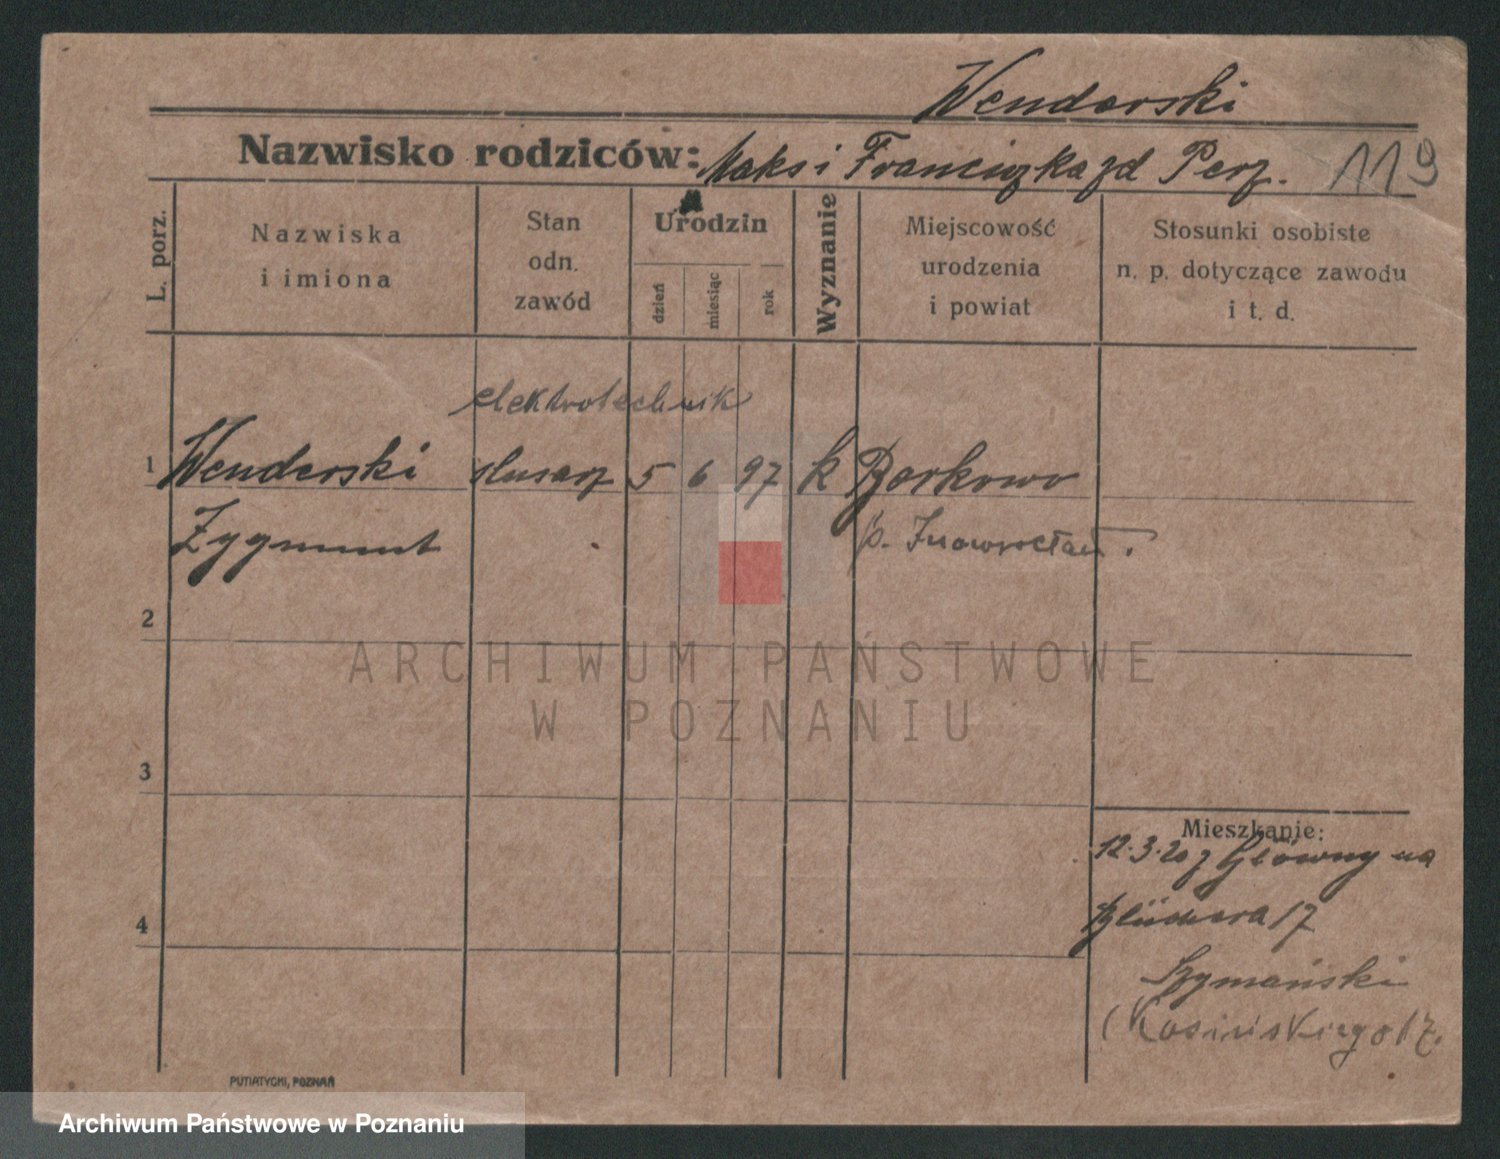 Wenderski
Nazwisko rodziców: Maks i Franciszka zd Perz. 119
L. porz.
Nazwiska
i imiona
Stan
odn.
zawód
Urodzin
dzień
miesiąc
rok
Wyznanie
Miejscowość
urodzenia
i powiat
Stosunki osobiste
n. p. dotyczące zawodu
i t. d.
elektrotechnik
1 Wenderski slusarz 5 6 97 k Borkowo
Zygmunt p. Inowrocław.
2
ARCHIWUM PAŃSTWOWE
W POZNANIU
3
Mieszkanie:
12.3.20 z Główny na
Blüchera 17
4
Szymański
(Kosińskiego 17.
PUTIATYCKI, POZNAŃ
Archiwum Państwowe w Poznaniu